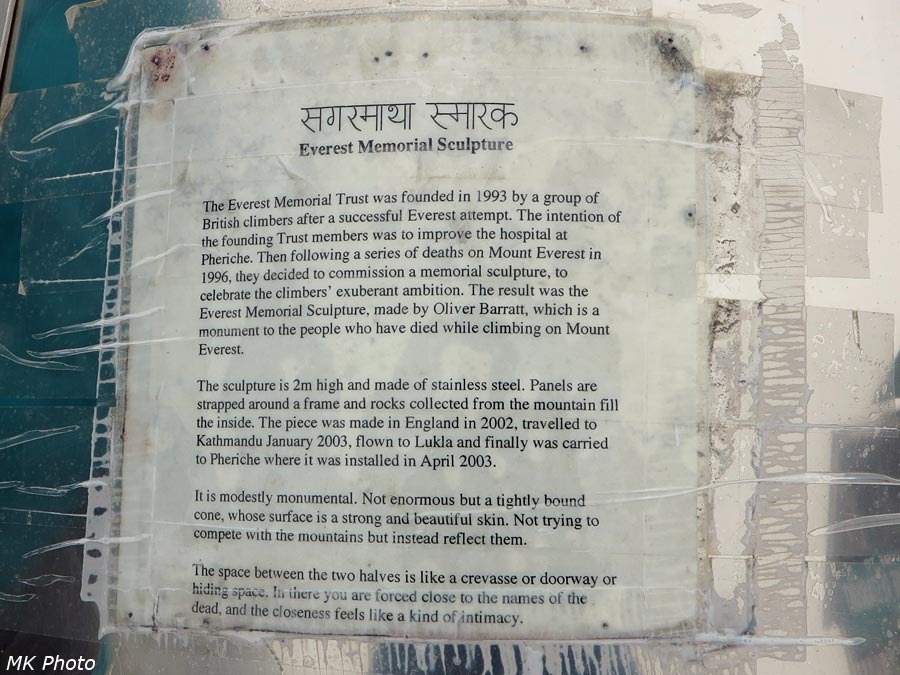 सगरमाथा स्मारक
Everest Memorial Sculpture
The Everest Memorial Trust was founded in 1993 by a group of
British climbers after a successful Everest attempt. The intention of
the founding Trust members was to improve the hospital at
Pheriche. Then following a series of deaths on Mount Everest in
1996, they decided to commission a memorial sculpture, to
celebrate the climbers' exuberant ambition. The result was the
Everest Memorial Sculpture, made by Oliver Barratt, which is a
monument to the people who have died while climbing on Mount
Everest.
The sculpture is 2m high and made of stainless steel. Panels are
strapped around a frame and rocks collected from the mountain fill
the inside. The piece was made in England in 2002, travelled to
Kathmandu January 2003, flown to Lukla and finally was carried
to Pheriche where it was installed in April 2003.
It is modestly monumental. Not enormous but a tightly bound
cone, whose surface is a strong and beautiful skin. Not trying to
compete with the mountains but instead reflect them.
The space between the two halves is like a crevasse or doorway or
hiding space. In there you are forced close to the names of the
dead, and the closeness feels like a kind of intimacy.
MK Photo